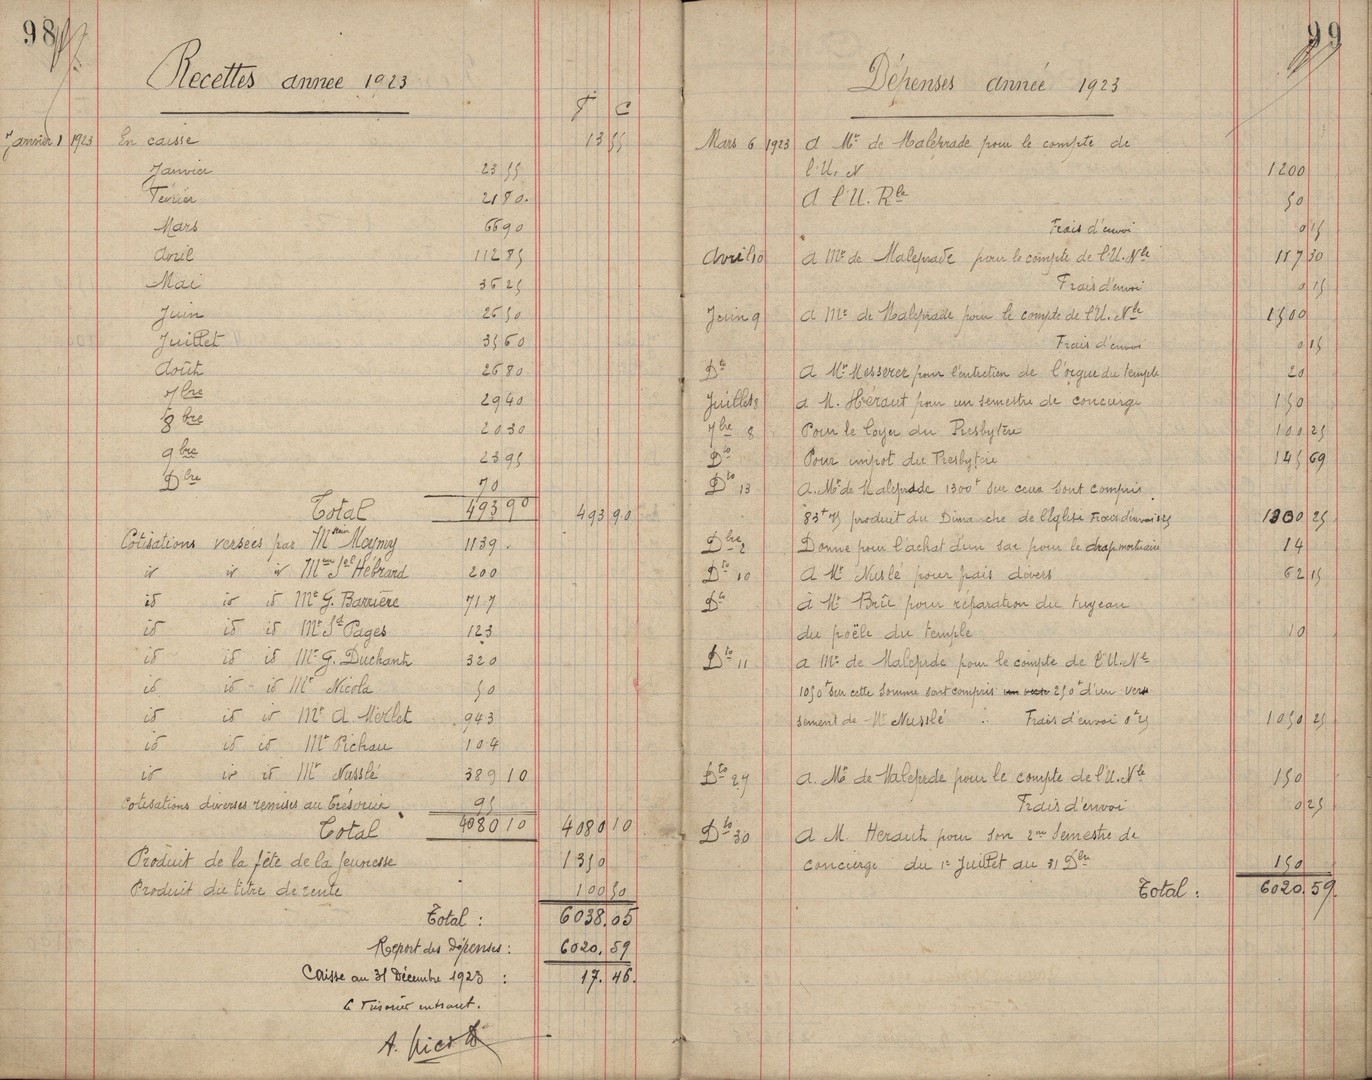 98
Recettes année 1923
F C
Janvier 1 1923 En caisse 13 55
Janvier 23 55
Février 21 80.
Mars 66 90
Avril 112 85
Mai 36 25
Juin 26 50
Juillet 35 60
Août 26 80
7bre 29 40
8bre 20 30
9bre 23 95
Dbre 70
Total 493 90 493 90
Cotisations versées par Maymy 1139.
id id id Hébrard 200
id id id Mr G. Barrière 717
id id id Pages 123
id id id Mr G. Duchant 320
id id id Mr Nicola 50
id id id Mr A. Merlet 943
id id id Mr Pichau 104
id id id Mr Nusslé 389 10
Cotisations diverses remises au trésorier 95
Total 4080 10 4080 10
Produit de la fête de la Jeunesse 1350
Produit du titre de rente 100 50
Total : 6038.05
Report des dépenses : 6020.59
Caisse au 31 Décembre 1923 : 17.46.
Le Trésorier entrant.
A.
99
Dépenses année 1923
Mars 6 1923 A Mr de Maleprade pour le compte de
l'U. N 1200
A l'U. Rle 50
Frais d'envoi 0 15
Avril 10 A Mr de Maleprade pour le compte de l'U. Nle 187 30
Frais d'envoi 0 15
Juin 9 A Mr de Maleprade pour le compte de l'U. Nle 1500
Frais d'envoi 0 15
Dto A Mr Messerer pour l'entretien de l'orgue du temple 20
Juillet 8 A M. Héraut pour un semestre de concierge 150
7bre 8 Pour le loyer du Presbytère 100 25
Dto Pour impot du Presbytère 145 69
Dto 13 A Mr de Maleprade 1300f sur ceux sont compris
83f75 produit du Dimanche de l'Eglise Frais d'envoi 25 1300 25
Dbre 2 Donné pour l'achat d'un sac pour le drap mortuaire 14
Dto 10 A Mr Nuslé pour frais divers 62 15
Dto à Mr Brûl pour réparation du tuyeau
du poële du temple 10
Dto 11 A Mr de Maleprde pour le compte de l'U. Nle
1050f sur cette somme sont compris 250f d'un ver
sement de Mr Nusslé : Frais d'envoi 0f25 1050 25
Dto 27 A. Mr de Maleprde pour le compte de l'U. Nle 150
Frais d'envoi 0 25
Dto 30 A M. Heraut pour son 2me Semestre de
concierge du 1r Juillet au 31 Dbre 150
Total : 6020.59